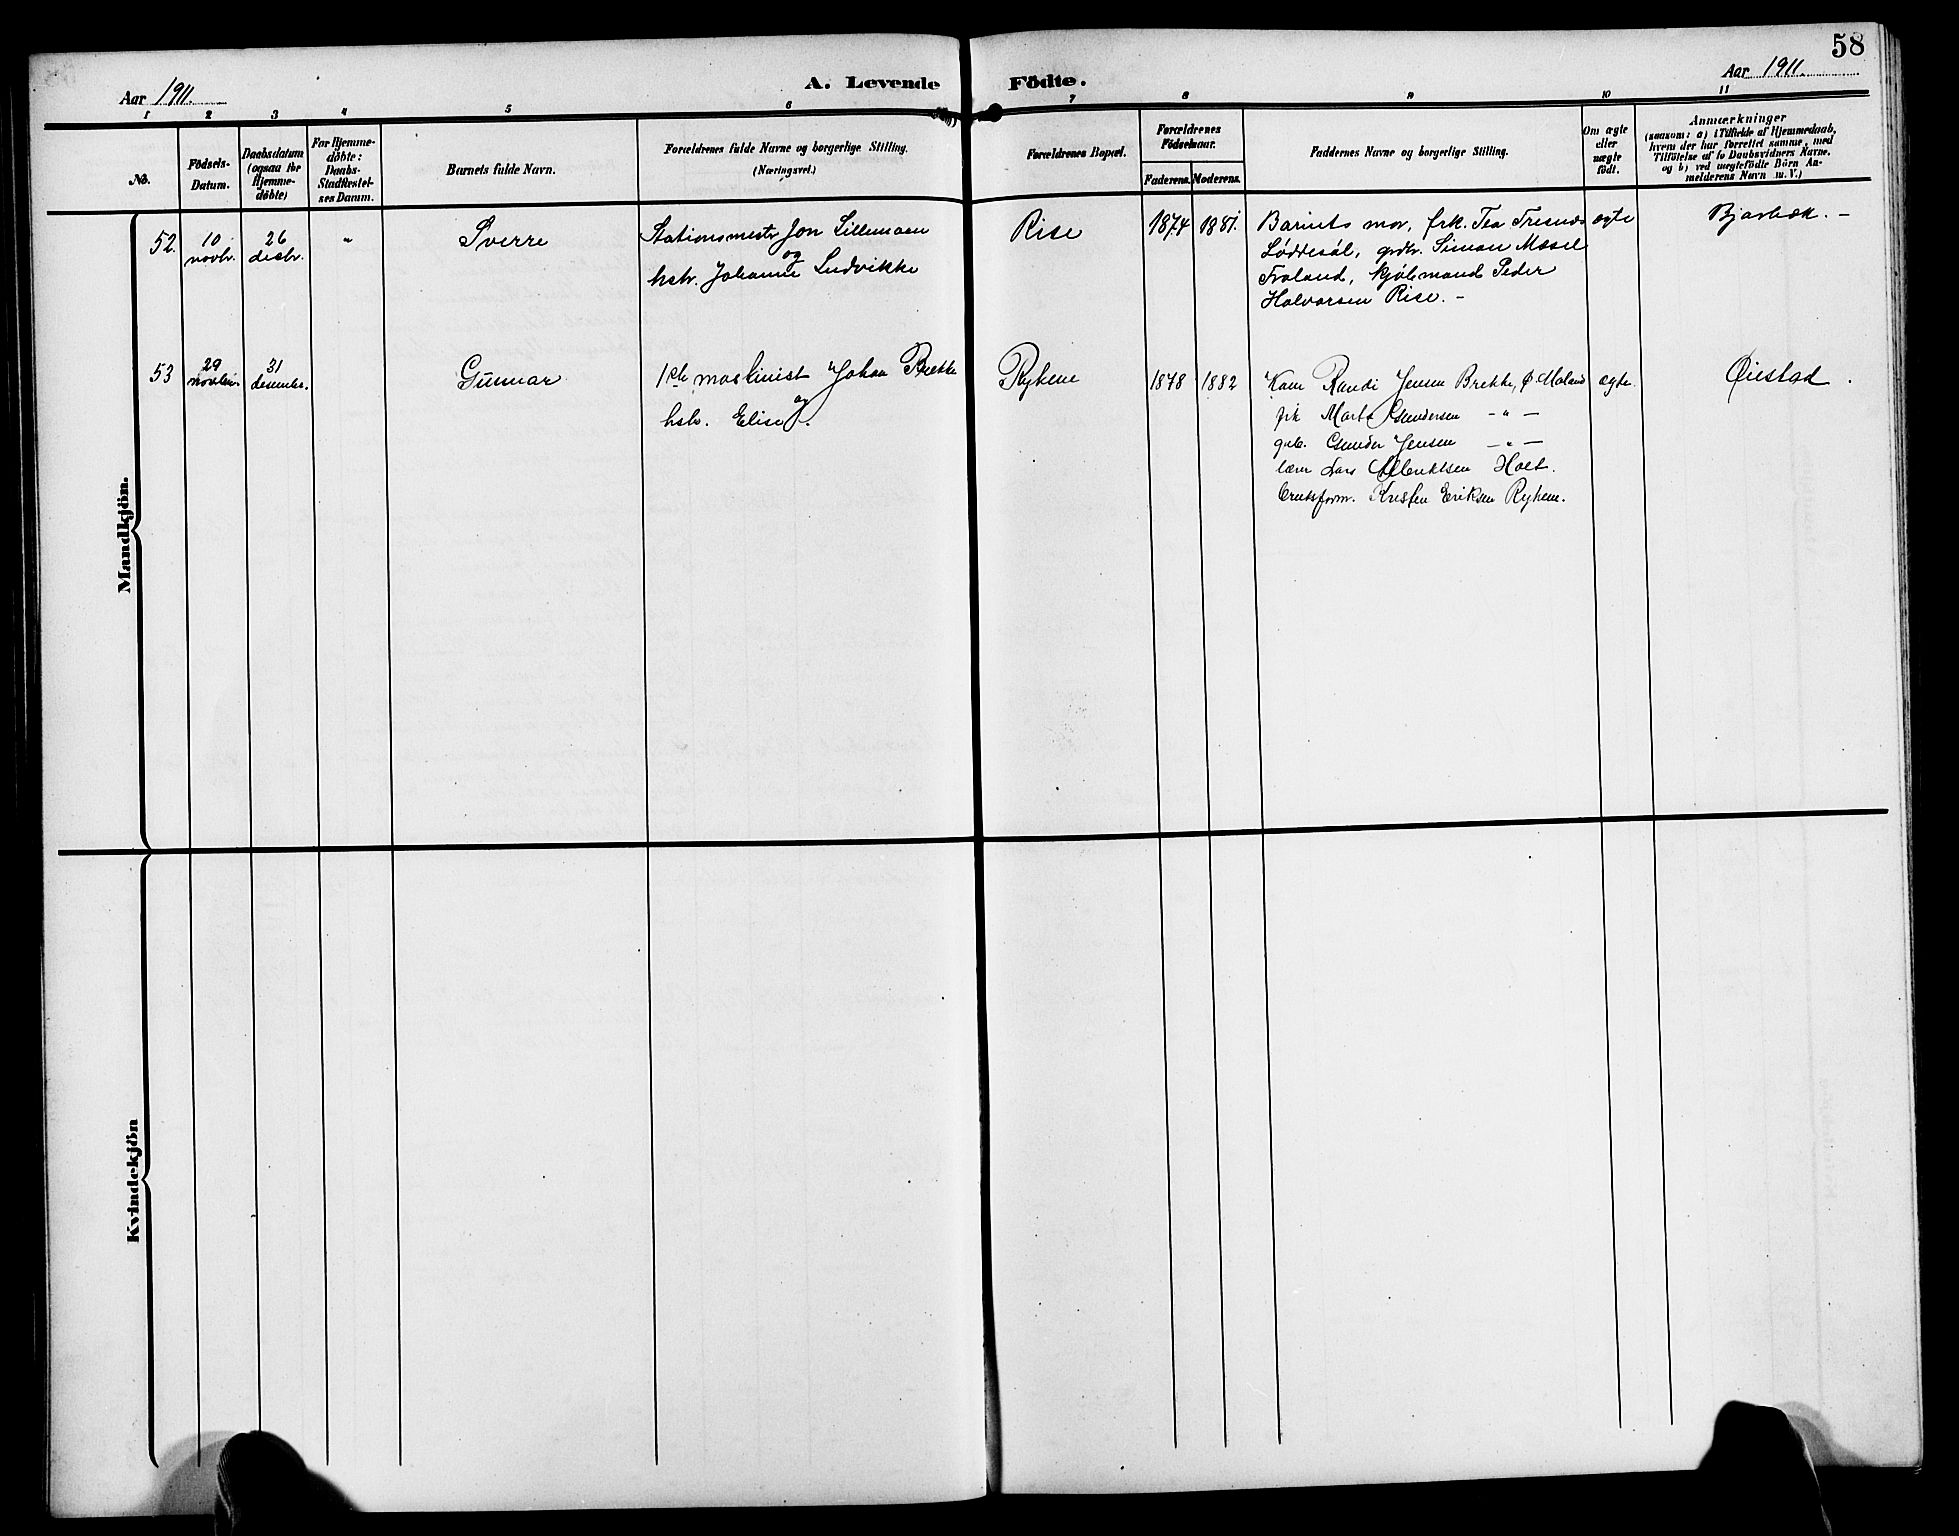 58
Aar 1911.
A. Levende Födte.
Aar 1911.
1 2 3 4 5 6 7 8 9 10 11
No.
Födsels-
Datum.
Daabsdatum
(ogsaa for
Hjemme-
döbte)
For Hjemme-
döbte:
Daabs-
Stadfæstel-
ses Datum.
Barnets fulde Navn.
Forældrenes fulde Navne og borgerlige Stilling.
(Næringsvei.)
Forældrenes Bopæl.
Forældrenes
Födselsaar.
Faderens. Moderens.
Faddernes Navne og borgerlige Stilling.
Om ægte
eller
uægte
födt.
Anmærkninger
(saasom: a) i Tilfælde af Hjemmedaab,
hvem der har forrettet samme, med
Tilföielse af to Daabsvidners Navne.
og b) ved uægtefödte Börn An-
melderens Navn m. V.)
Mandkjön.
52. 10 novbr. 26 desbr. " Sverre
Stationsmester Jon Lillemoen
og
hstr. Johanne Ludvikke
Rise 1874 1881.
Barnets mor, frk. Tea Tresnes
Løddesøl, grdbr. Simon Messel
Froland, kjøbmand Peder
Halvorsen Rise. -
ægte
Bjorbæk. -
53 29 novbr. 31 desember. Gunnar
1ste maskinist Johan Brekke
og
hstr. Elise.
Rykene 1878 1882
Kone Randi Jensen Brekke, Ø. Moland
frk Marta Gundersen - " -
gbr. Gunder Jensen - " -
lærer Lars Holt.
form. Kristen Eriksen Rykene.
ægte.
Øiestad.
Kvindekjön